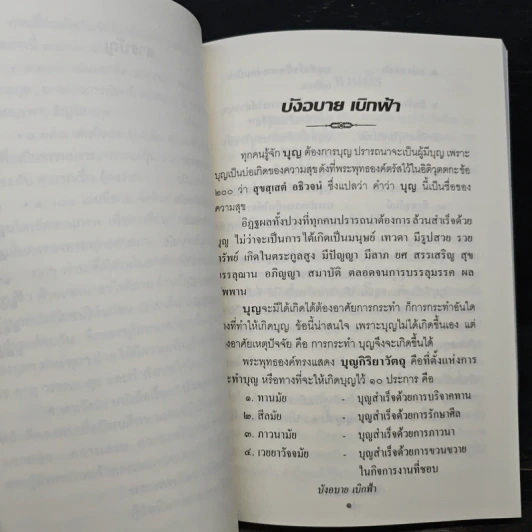 บังอบาย เบิกฟ้า
ทุกคนรู้จัก บุญ ต้องการบุญ ปรารถนาจะเป็นผู้มีบุญ เพราะ
บุญเป็นบ่อเกิดของความสุข ดังที่พระพุทธองค์ตรัสไว้ในอิติวุตตกะข้อ
๒๐๐ ว่า สุขสฺเสตํ อธิวจนํ ซึ่งแปลว่า คำว่า บุญ นี้เป็นชื่อของ
ความสุข
อิฏฐผลทั้งปวงที่ทุกคนปรารถนาต้องการ ล้วนสำเร็จด้วย
บุญ ไม่ว่าจะเป็นการได้เกิดเป็นมนุษย์ เทวดา มีรูปสวย รวย
ทรัพย์ เกิดในตระกูลสูง มีปัญญา มีลาภ ยศ สรรเสริญ สุข
บรรลุฌาน อภิญญา สมาบัติ ตลอดจนการบรรลุมรรค ผล
พพาน
บุญจะมีได้เกิดได้ต้องอาศัยการกระทำ ก็การกระทำอันใด
างที่ทำให้เกิดบุญ ข้อนี้น่าสนใจ เพราะบุญไม่ได้เกิดขึ้นเอง แต่
องอาศัยเหตุปัจจัย คือ การกระทำ บุญจึงจะเกิดขึ้นได้
พระพุทธองค์ทรงแสดง บุญกิริยาวัตถุ คือที่ตั้งแห่งการ
ระทำบุญ หรือทางที่จะให้เกิดบุญไว้ ๑๐ ประการ คือ
๑. ทานมัย - บุญสำเร็จด้วยการบริจาคทาน
๒. สีลมัย - บุญสำเร็จด้วยการรักษาศีล
๓. ภาวนามัย - บุญสำเร็จด้วยการภาวนา
๔. เวยยาวัจจมัย - บุญสำเร็จด้วยการขวนขวาย
ในกิจการงานที่ชอบ
บังอบาย เบิกฟ้า
๑